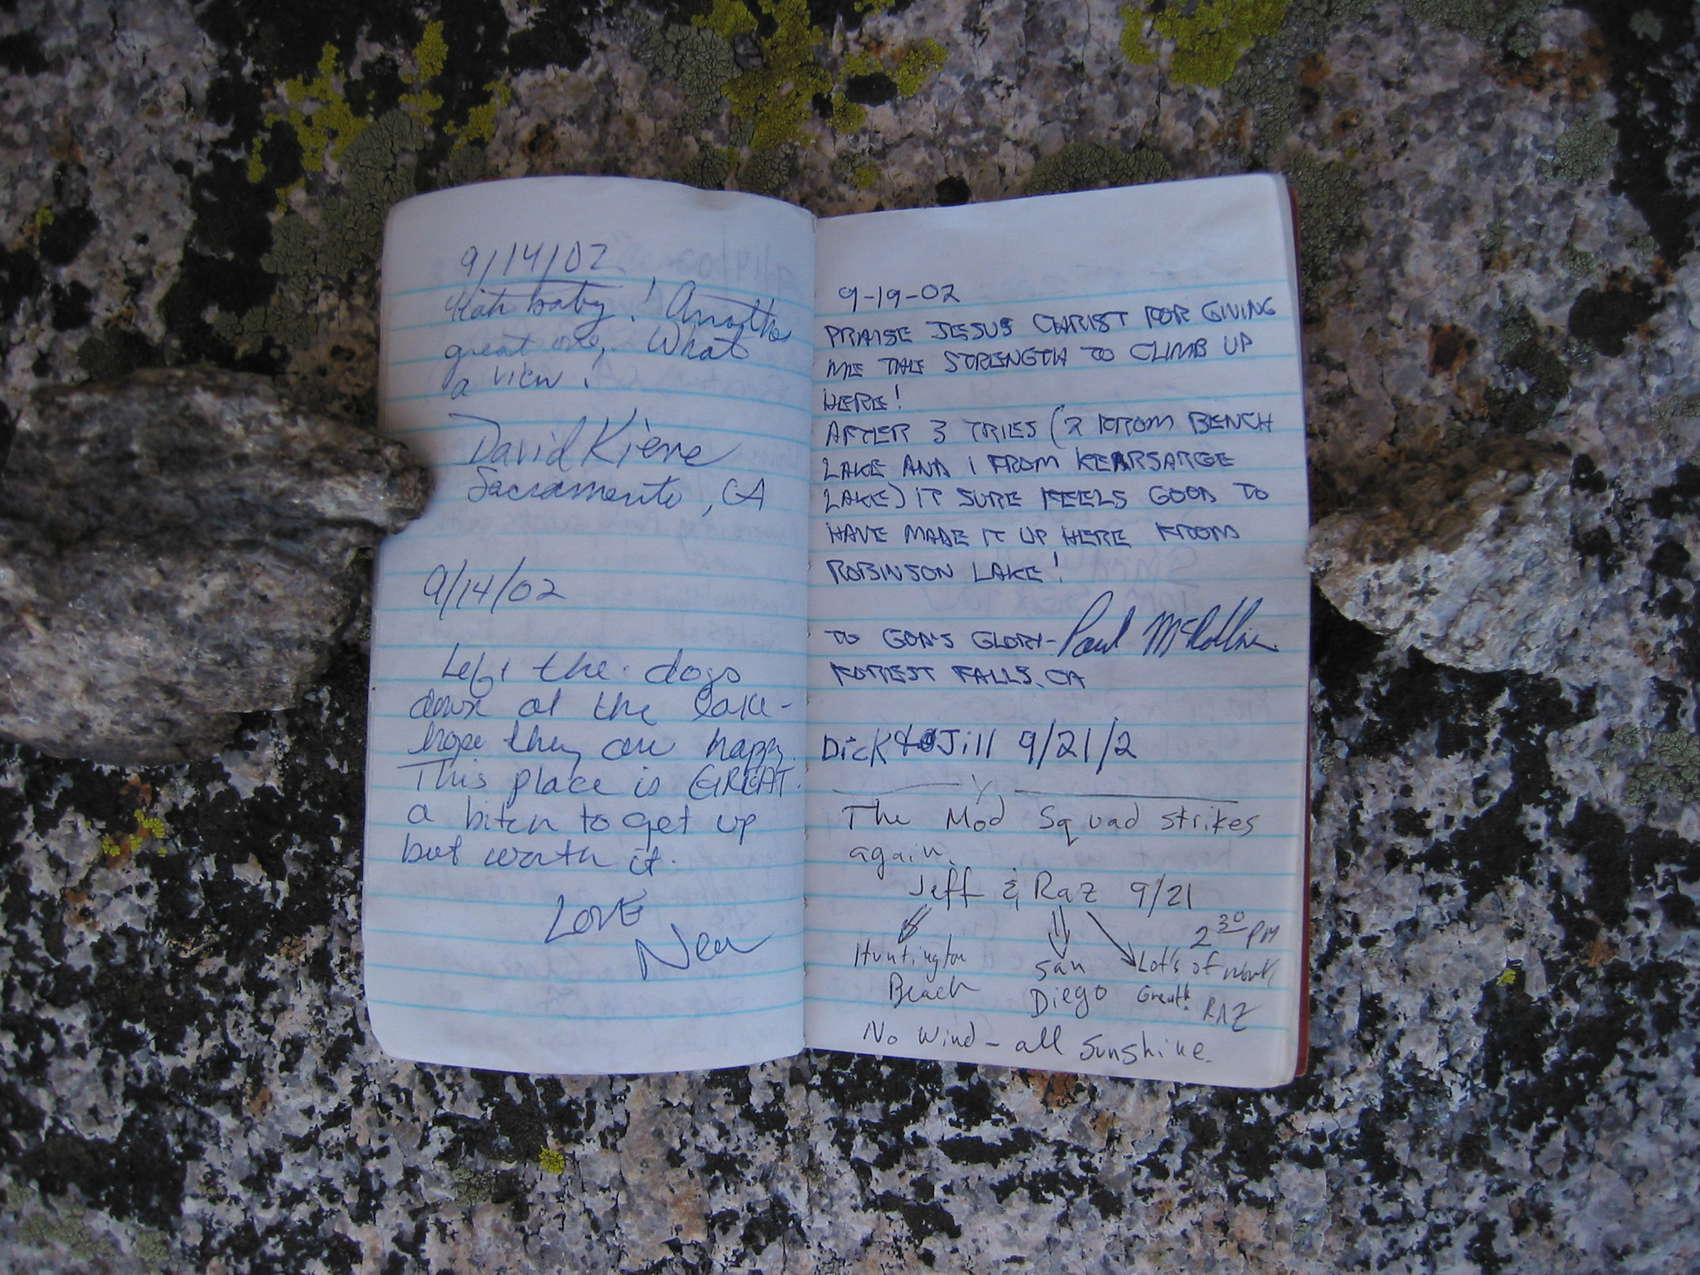 9/14/02
Yeah baby! Another
great one, What
a view!
David Kiene
Sacramento, CA
9/14/02
Left the dogs
down at the lake-
hope they are happy.
This place is GREAT.
a bitch to get up
but worth it.
LOVE
9-19-02
PRAISE JESUS CHRIST FOR GIVING
ME THE STRENGTH TO CLIMB UP
HERE!
AFTER 3 TRIES (2 FROM BENCH
LAKE AND 1 FROM KEARSARGE
LAKE) IT SURE FEELS GOOD TO
HAVE MADE IT UP HERE FROM
ROBINSON LAKE!
TO GOD'S GLORY- Paul
FOREST FALLS, CA
Dick & Jill 9/21/2
The Mod Squad strikes
again.
Jeff & Raz 9/21
2 30 PM
Huntington
Beach
San
Diego
Lot's of work
Great!
RAZ
No wind - all sunshine.